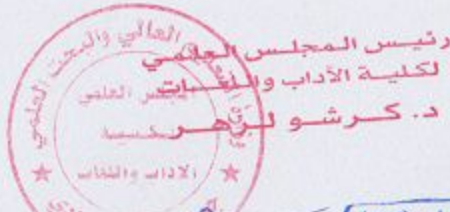 رئيس المجلس العلمي
لكلية الآداب واللغات
د. كرشو لزهر
العالي والبحث العلمي
المجلس العلمي
لكلية
الآداب واللغات